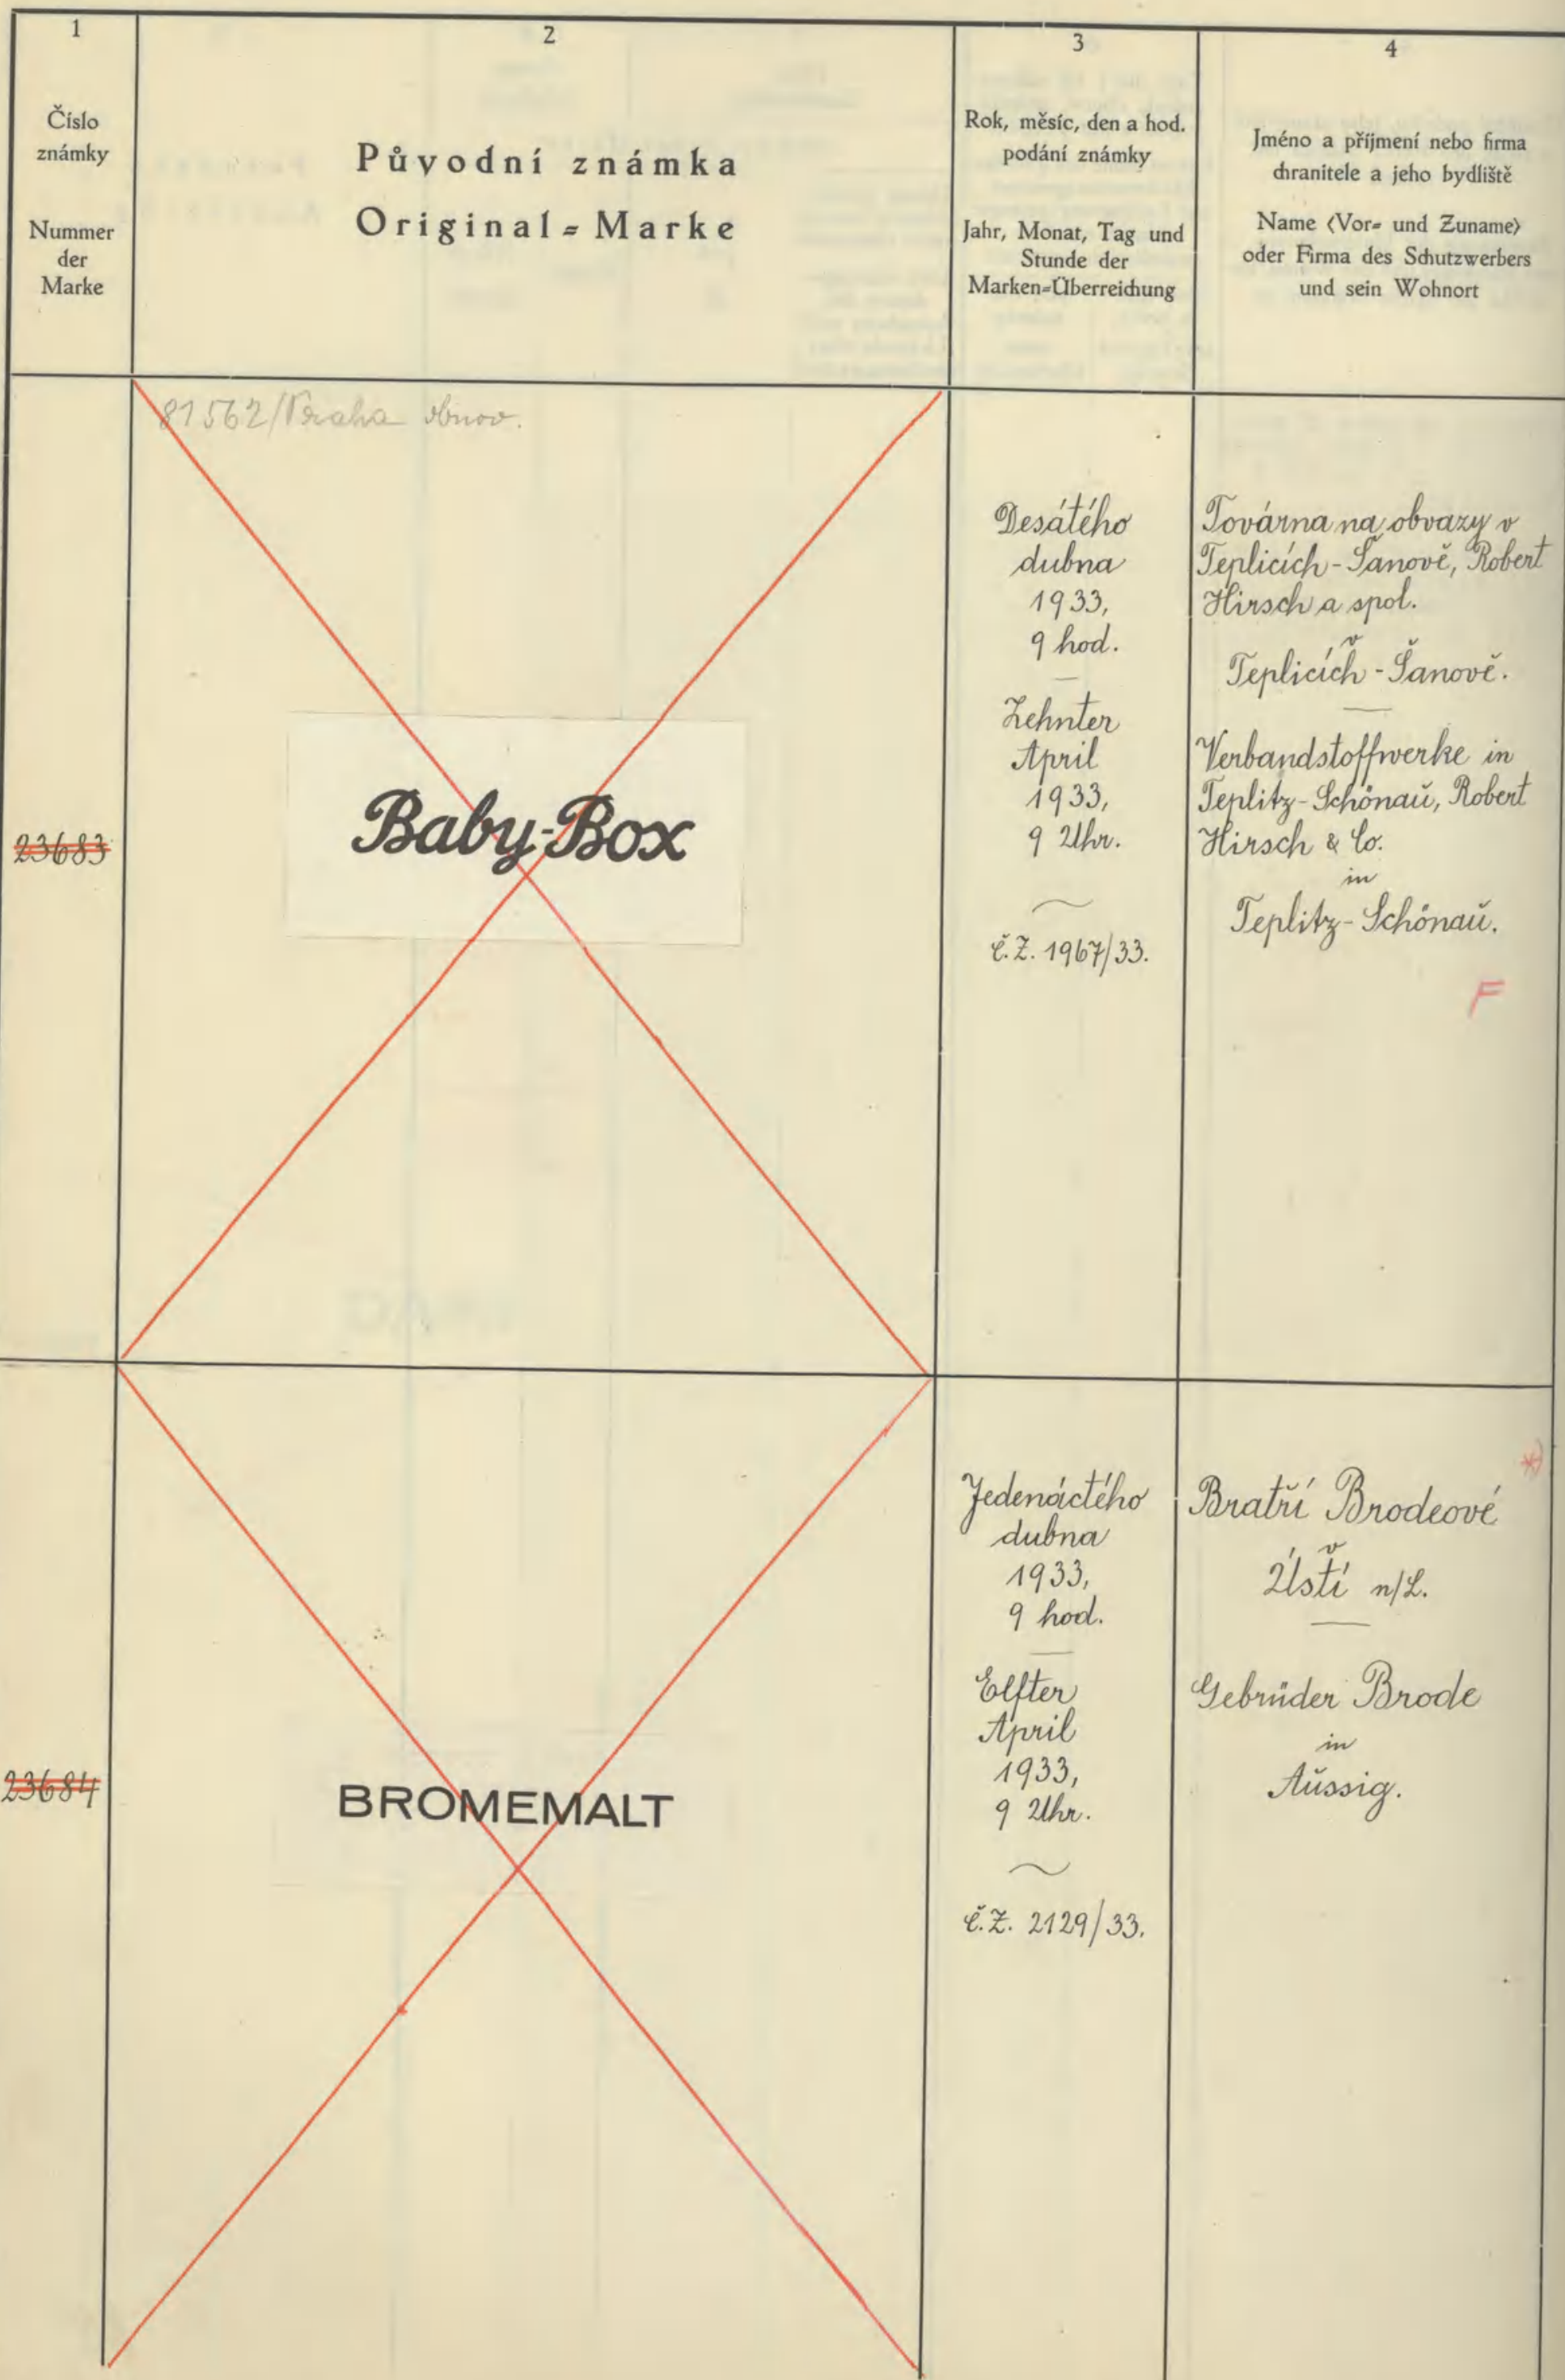 1
Číslo
známky
Nummer
der
Marke
2
Původní známka
Original=Marke
3
Rok, měsíc, den a hod.
podání známky
Jahr, Monat, Tag und
Stunde der
Marken=Überreichung
4
Jméno a příjmení nebo firma
chranitele a jeho bydliště
Name (Vor= und Zuname)
oder Firma des Schutzwerbers
und sein Wohnort
81562/Praha obnov.
23683
Baby-Box
Desátého
dubna
1933,
9 hod.
Zehnter
April
1933,
9 Uhr.
č.Z. 1967/33.
Továrna na obvazy v
Teplicích-Šanově, Robert
Hirsch a spol.
v
Teplicích-Šanově.
Verbandstoffwerke in
Teplitz-Schönau, Robert
Hirsch & Co.
in
Teplitz-Schönau.
F
23684
BROMEMALT
Jedenáctého
dubna
1933,
9 hod.
Elfter
April
1933,
9 Uhr.
č.Z. 2129/33.
*)
Bratří Brodeové
v
Ústí n/L.
Gebrüder Brode
in
Aussig.